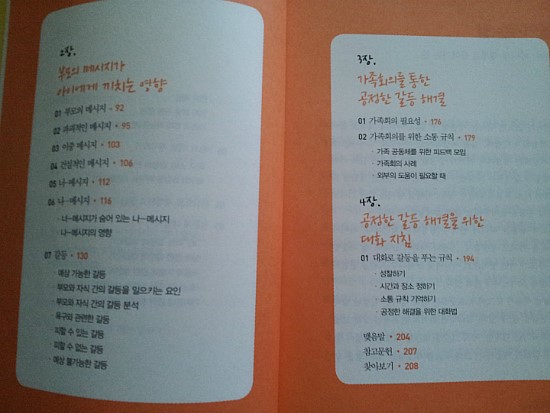 2장.
부모의 메시지가
아이에게 끼치는 영향
01 부모의 메시지 · 92
02 파괴적인 메시지 · 95
03 이중 메시지 · 103
04 건설적인 메시지 · 106
05 나-메시지 · 112
06 나-메시지 · 116
· 나-메시지가 숨어 있는 나-메시지
· 나-메시지의 영향
07 갈등 · 130
· 예상 가능한 갈등
· 부모와 자식 간의 갈등을 일으키는 요인
· 부모와 자식 간의 갈등 분석
· 욕구와 관련한 갈등
· 피할 수 있는 갈등
· 피할 수 없는 갈등
· 예상 불가능한 갈등
3장.
가족회의를 통한
공정한 갈등 해결
01 가족회의 필요성 · 176
02 가족회의를 위한 소통 규칙 · 179
· 가족 공동체를 위한 피드백 모임
· 가족회의 사례
· 외부의 도움이 필요할 때
4장.
공정한 갈등 해결을 위한
대화 지침
01 대화로 갈등을 푸는 규칙 · 194
· 성찰하기
· 시간과 장소 정하기
· 소통 규칙 기억하기
· 공정한 해결을 위한 대화법
맺음말 · 204
참고문헌 · 207
찾아보기 · 208